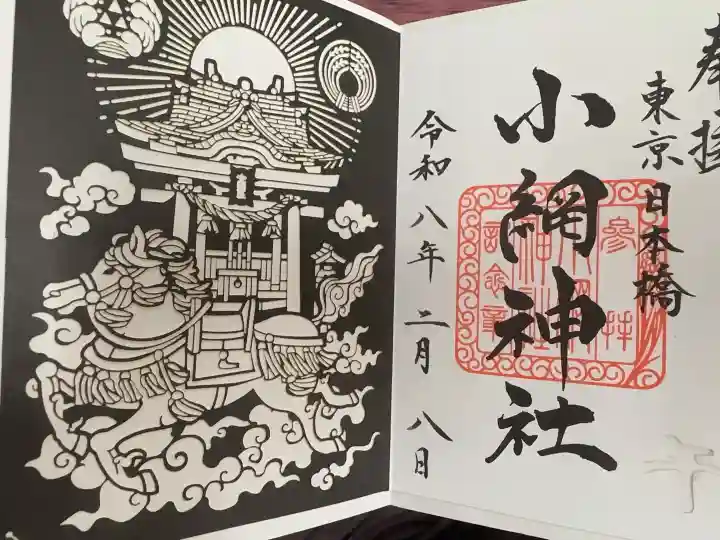 奉拝
東京 日本橋
小網神社
令和八年 二月 八日
午